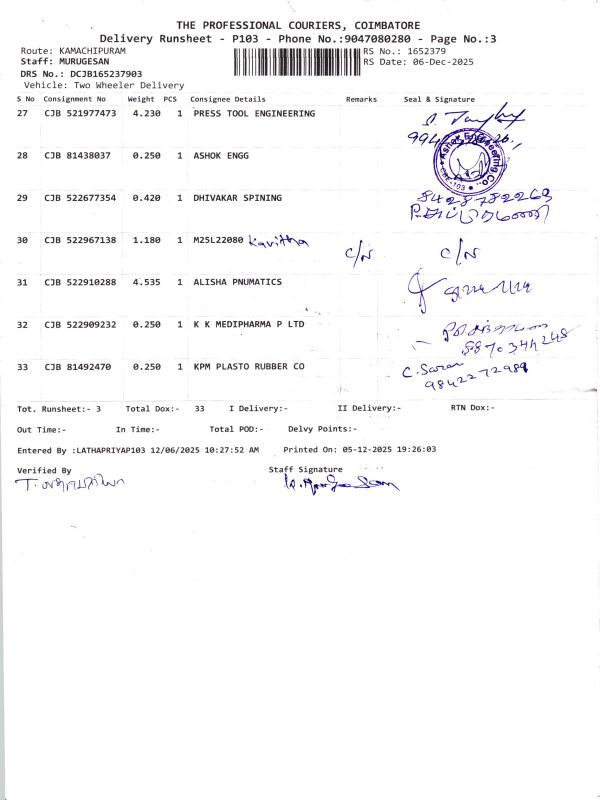 THE PROFESSIONAL COURIERS, COIMBATORE
Delivery Runsheet - P103 - Phone No.:9047080280 - Page No.:3
Route: KAMACHIPURAM RS No.: 1652379
Staff: MURUGESAN RS Date: 06-Dec-2025
DRS No.: DCJB165237903
Vehicle: Two Wheeler Delivery
S No Consignment No Weight PCS Consignee Details Remarks Seal & Signature
27 CJB 521977473 4.230 1 PRESS TOOL ENGINEERING
28 CJB 81438037 0.250 1 ASHOK ENGG
Ashok Engineering Co.
29 CJB 522677354 0.420 1 DHIVAKAR SPINING 8428782263
30 CJB 522967138 1.180 1 M25L22080 Kavitha C/N C/N
31 CJB 522910288 4.535 1 ALISHA PNUMATICS
32 CJB 522909232 0.250 1 K K MEDIPHARMA P LTD
8870344248
33 CJB 81492470 0.250 1 KPM PLASTO RUBBER CO C. Saran
9842272989
Tot. Runsheet:- 3 Total Dox:- 33 I Delivery:- II Delivery:- RTN Dox:-
Out Time:- In Time:- Total POD:- Delvy Points:-
Entered By :LATHAPRIYAP103 12/06/2025 10:27:52 AM Printed On: 05-12-2025 19:26:03
Verified By Staff Signature